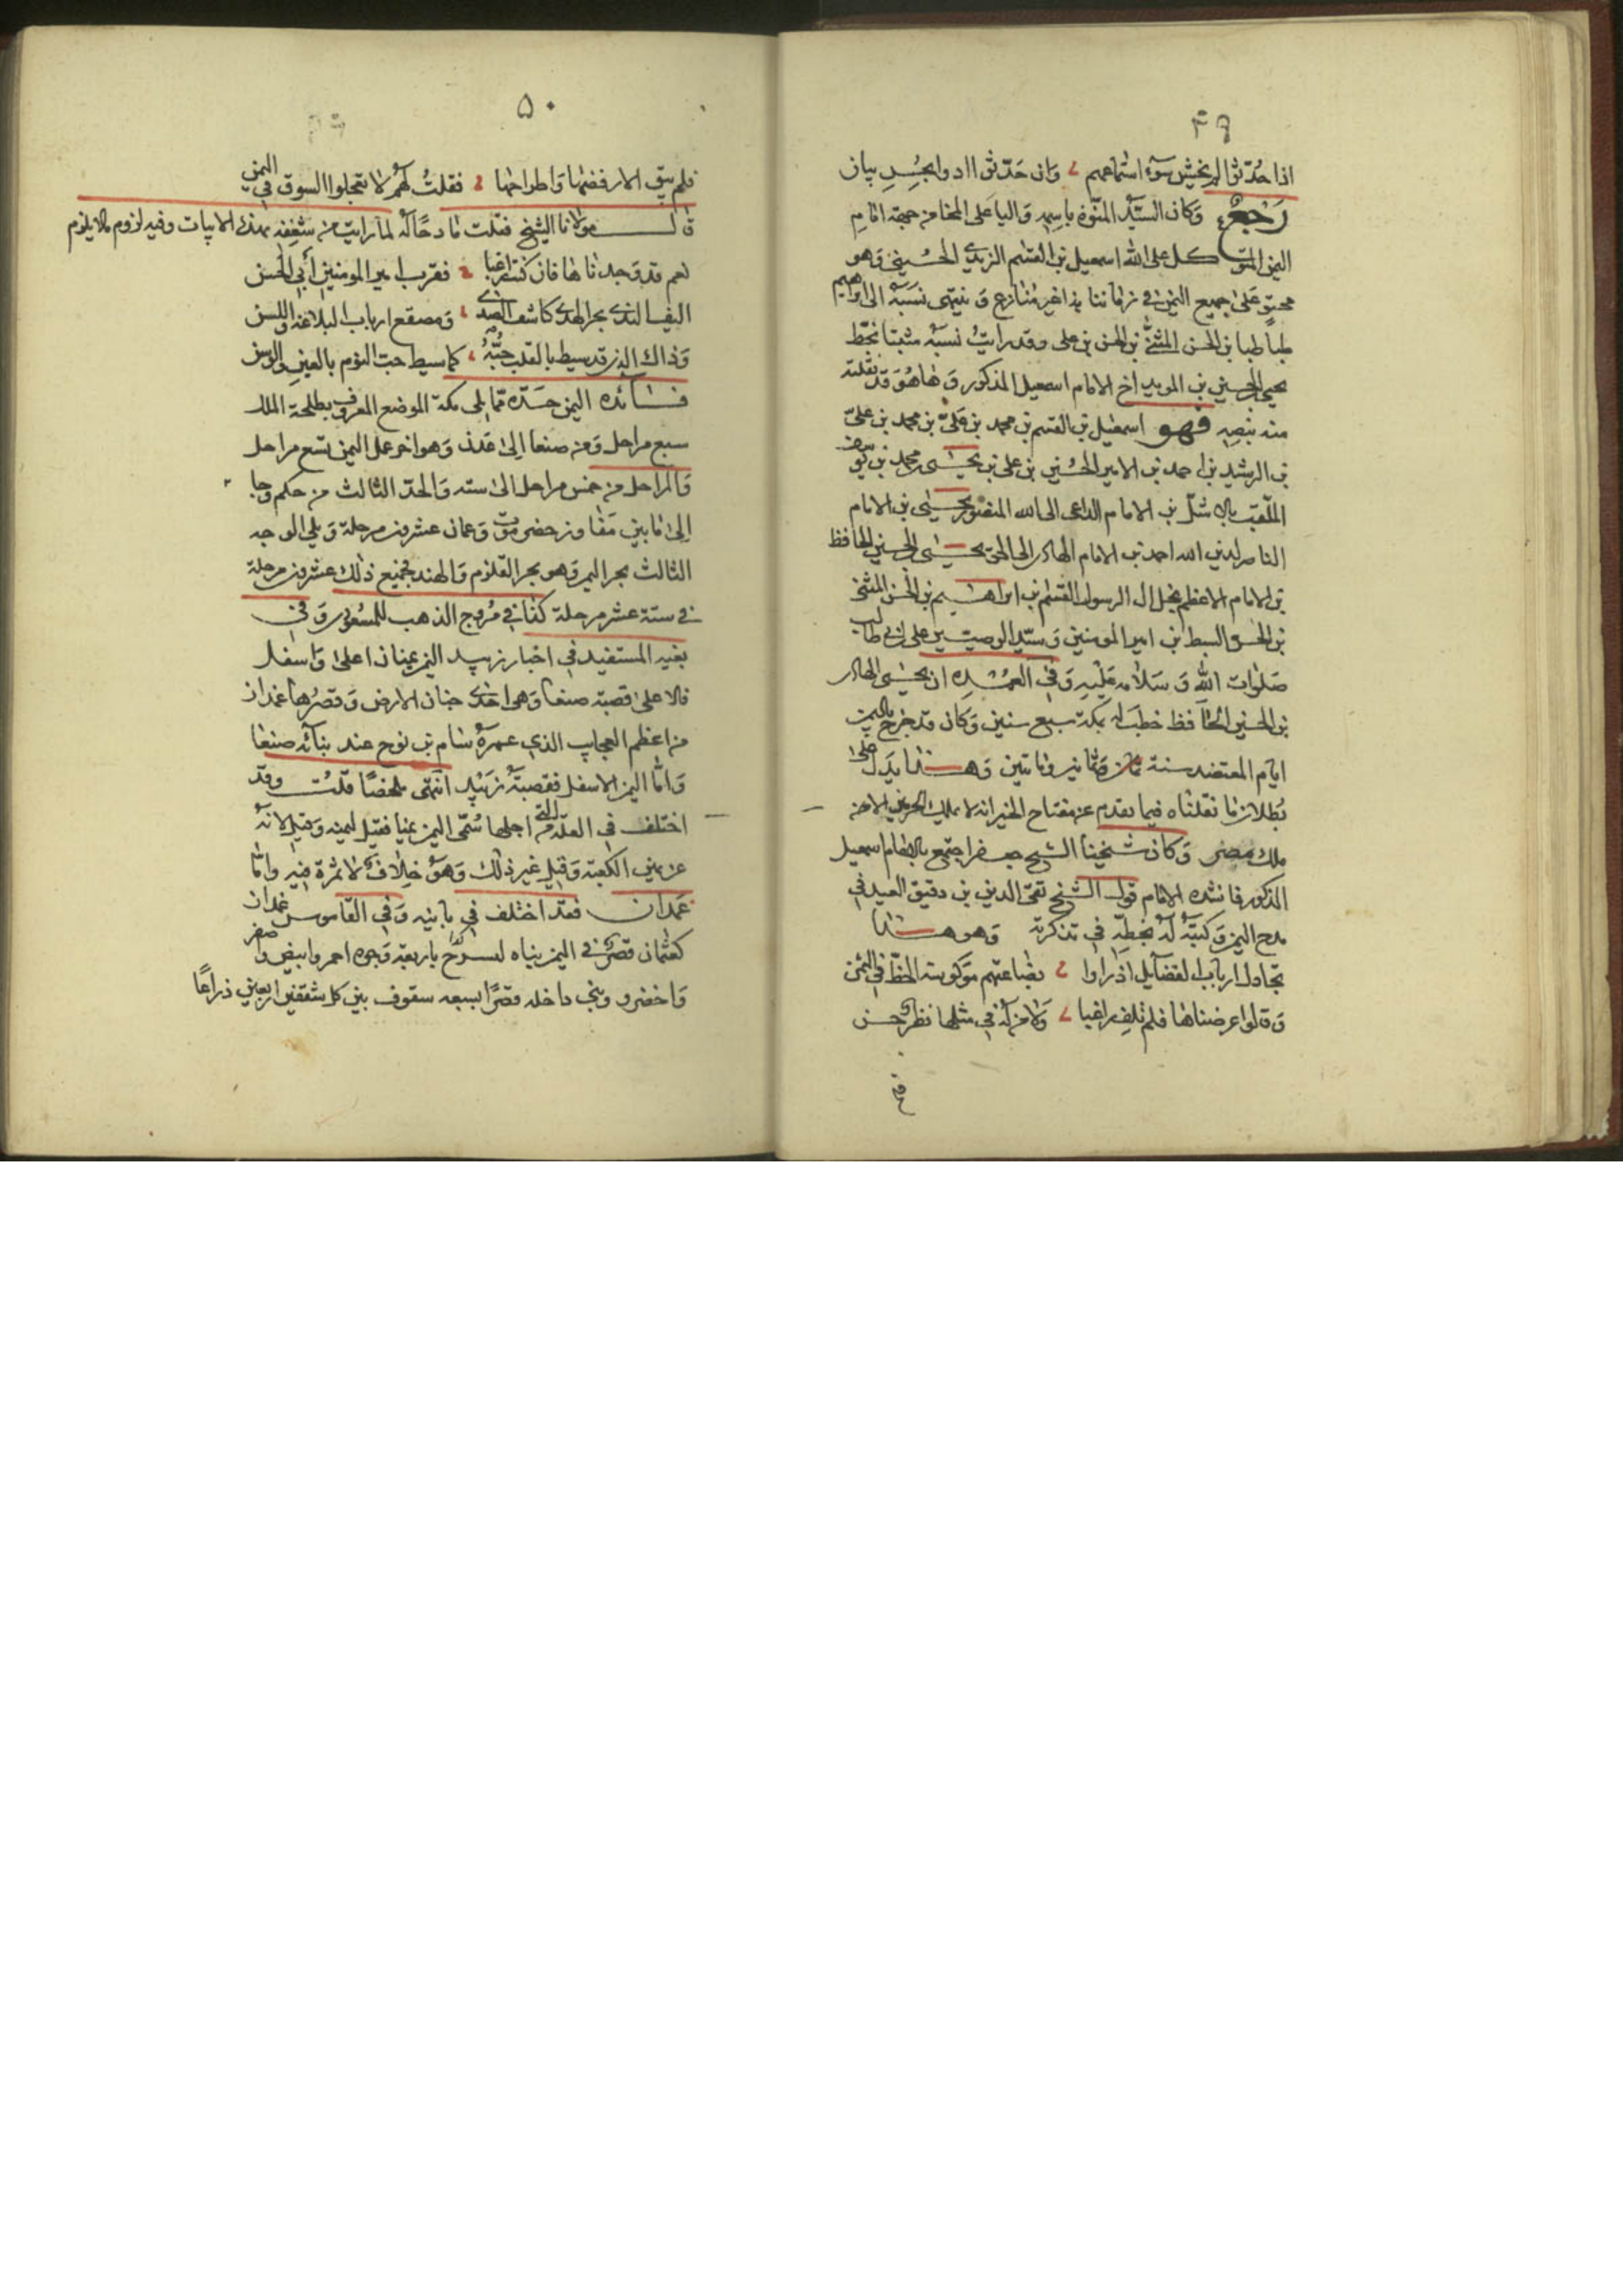 ٤٩
اذا حُدّثوا لم يخش سوء استماعهم وان حدّثوا ادوا بحُسنِ بيان
رَجعٌ وكان السيّد المنّوه باسمه واليا على المخا من جهة امام
اليمن المتوكل على الله اسمعيل بن القسم الزيدي الحسيني وهو
محتوٍ على جميع اليمن في زماننا هذا غير مُنازع وينتهى نسبه الى ابراهيم
طباطبا بن الحسن المثنّى بن الحسن بن على وقد رايتُ نسبه مثبتا بخطّ
يحيى الحسيني بن المويد اخ الامام اسمعيل المذكور وها هو قد نقلته
منه بنصه فهو اسمعيل بن القسم بن محمد بن عليّ بن محمد بن عليّ
بن الرشيد بن احمد بن الامير الحسين بن على بن يحيى بن محمد بن يوسف
الملّقب بالاشلّ بن الامام الداعى الى الله المنصور يحيى بن الامام
الناصر لدين الله احمد بن الامام الهادى الى الحق يحيى بن الحسين الحافظ
بن الامام الاعظم نجل ال الرسول القسم بن ابراهيم بن الحسن المثنى
بن الحسن السبط بن امير المومنين وسيّد الوصيين على بن ابى طالب
صلوات الله وسلامه عليه وفي العُمْدة ان يحيى الهادى
بن الحسين الحافظ خطب له بمكة سبع سنين وكان قد خرج باليمن
ايام المعتضد سنة ثمان وثمانين وماتين وهذا يدل على
بُطلان ما نقلناه فيما تقدم عن مفتاح الخير انه لا يملك الحرمين الا من
ملك مصر وكان شيخنا الشيخ جعفر اجتمع بالامام اسمعيل
المذكور فانشده الامام قول الشيخ تقى الدين بن دقيق العيد في
مدح اليمن وكتبه له بخطه في تذكرته وهو هذا
تجادل ارباب الفضايل اذ راوا بضاعتهم موكوسة الحظّ في الثمن
وقالوا عرضناها فلم نلف راغبا ولا من له في مثلها نظر حسن
فلم
٥٠
فلم يبق الا رفضها واطراحها فقلتُ لهم لا تعجلوا السوق في اليمن
قال مولانا الشيخ فقلت مادحًا له لما رايت من شغفه بهذه الابيات وفيه لزوم ما لا يلزم
نعم قد وجدناها فان كنت راغبا فقرب امير المومنين أبي الحسن
اليف الندى بحر الهدى كاشف الصدى ومصقع ارباب البلاغه واللسن
وذاك الذى قد سيط بالقلب حبّهُ كما سيط حب النوم بالعين والوسن
فائده اليمن حدّه مما يلى مكة الموضع المعروف بطلحة الملك
سبع مراحل ومن صنعا الى عدن وهو اخر عمل اليمن تسع مراحل
والمراحل من خمس مراحل الى سته والحدّ الثالث من حكم وجا
الى ما بين مفاوز حضرموت وعمان عشرون مرحلة ويلي الوجه
الثالث بحر اليمن وهو بحر القلزم والهند فجميع ذلك عشرون مرحلة
في ستة عشر مرحلة كذا في مُروج الذهب للمسعودى وفي
بغية المستفيد في اخبار زبيد اليمن يمنان اعلى واسفل
فالاعلى قصبته صنعا وهى احدى جنان الارض وقصرُها غمدان
من اعظم العجايب الذي عمره سام بن نوح عند بنائه صنعا
وامّا اليمن الاسفل فقصبته زبيد انتهى ملخصًا قلتُ وقد
اختلف في العلّة التي من اجلها سُمّى اليمن يمنا فقيل ليمنه وقيل لانه
عن يمين الكعبة وقيل غير ذلك وهو خلاف لا ثمرة فيه وامّا
غمدان فقد اختلف في بانيه وفي القاموس غمدان
كعثمان قصر في اليمن بناه ليسرح باربعة وجوه احمر وابيض واصفر
واخضر وبنى داخله قصرًا بسبعه سقوف بين كل سقفين اربعين ذراعًا